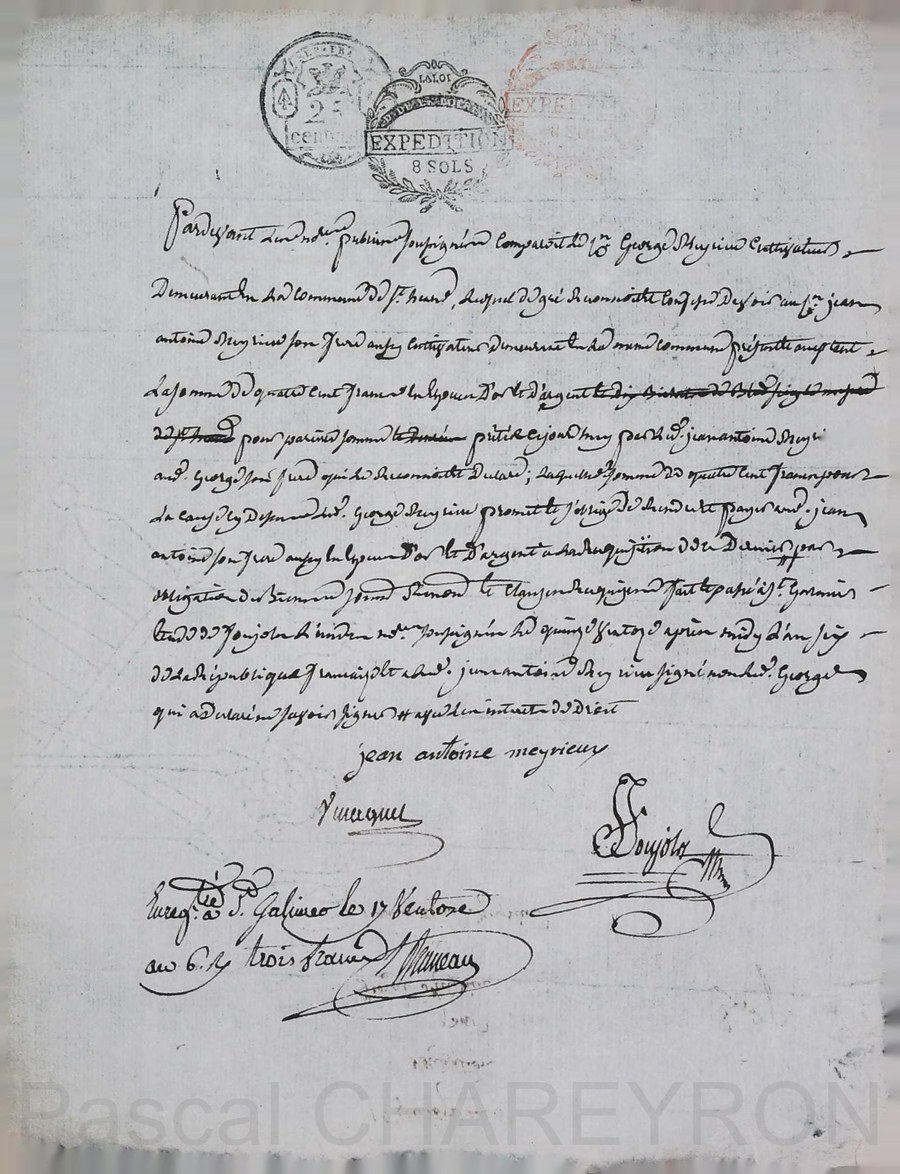 REP. FRA
25
centimes
LA LOI
EXPEDITION
8 SOLS
EXPEDITION
8 SOLS
Pardevant publique soussigné Comparoit le George Meyrieu Cultivateur
Demeurant En la Commune de St , lequel de gré Reconnoit & Confesse Devoir au jean
antoine Meyrieu son frere aussy Cultivateur Demeurant En la meme Commune présent & acceptant
La somme de quatre Cent francs En Especes D'or & D'argent
pour pareille somme prétée Ce jourd'huy par led. jean antoine Meyrieu
aud. George son frere qui la Reconnoit & Declare ; laquelle somme de quatre Cent francs pour
La Cause Cy Dessus led. George Meyrieu promet & s'oblige de Rendre & payer aud. jean
antoine son frere aussy En Especes D'or & D'argent a la Requisition de Ce Dernier par
obligation de Biens & Clauses Requises fait & passé à St. Galmier
Etude de Poujolz l'un des soussigné le quinze Ventose après midy L'an six
de la Republique francaise & a led. jean antoine Meyrieu signé non led. George
qui a Declaré ne savoir signer de Droit
jean antoine meyrieux
Poujolz
Enregt. à St. Galmier le 17 Ventose
an 6. R trois francs
Pascal CHAREYRON